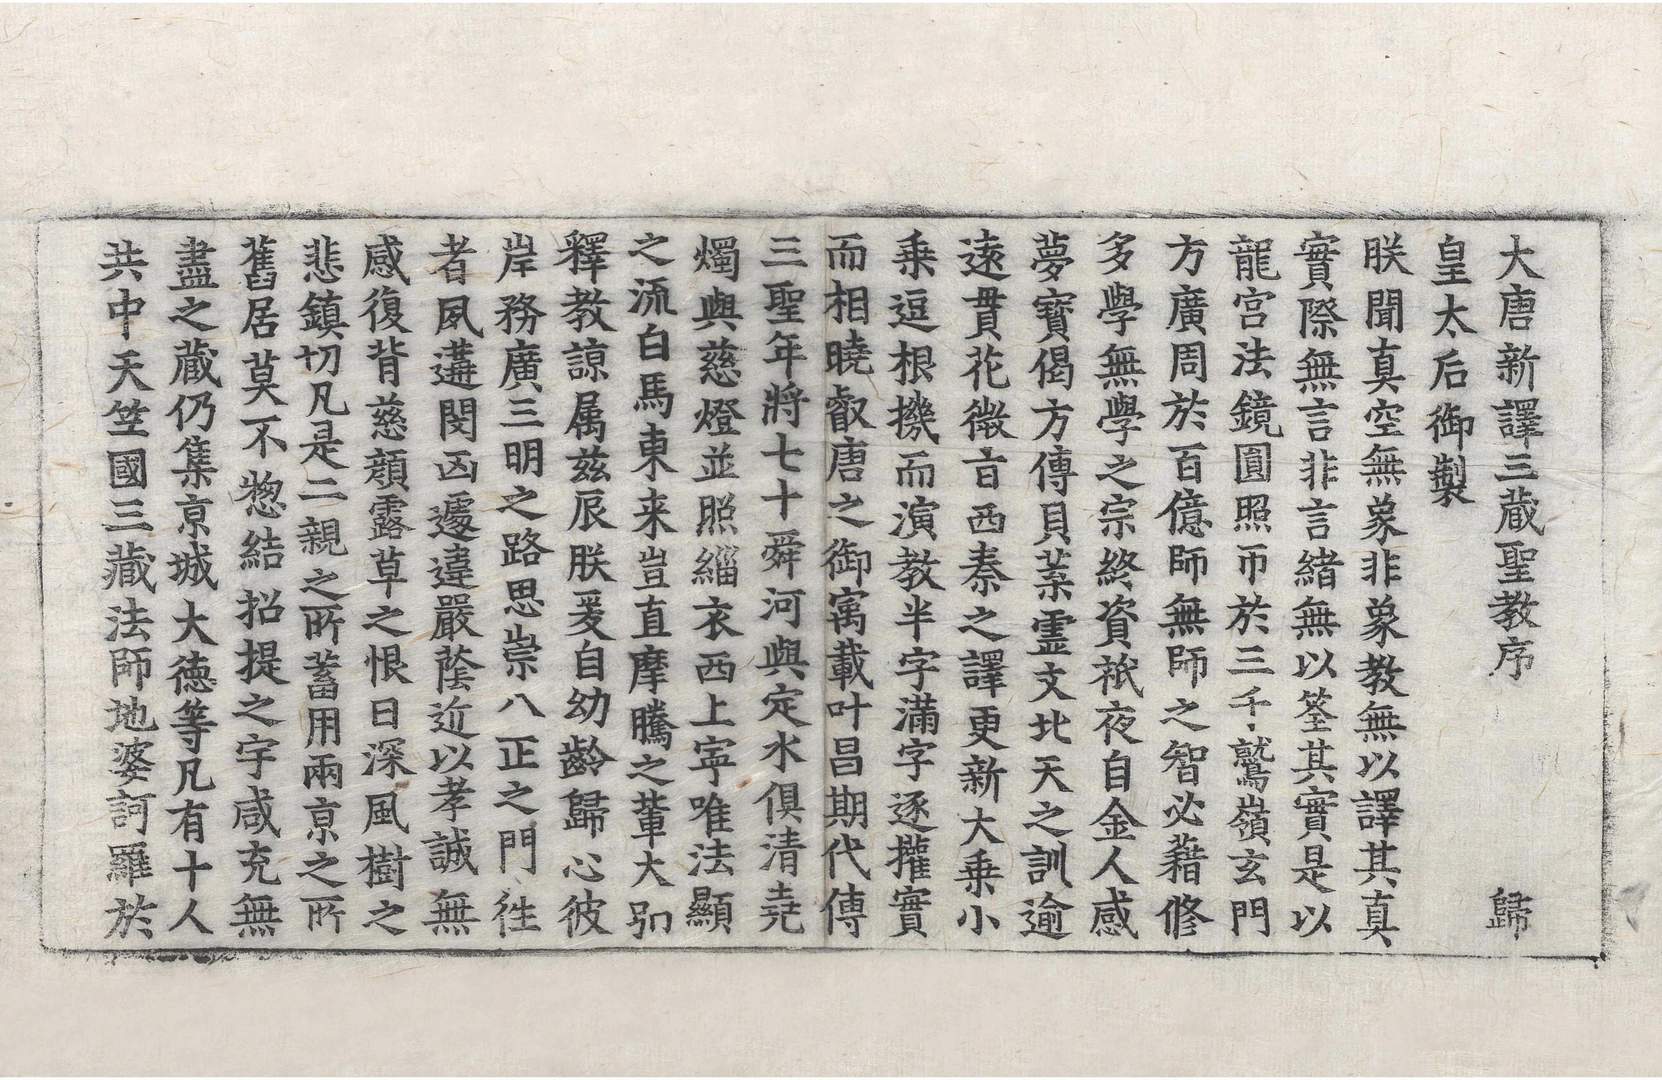 大唐新譯三藏聖教序 歸
皇太后御製
朕聞真空無象非象教無以譯其真
實際無言非言緒無以筌其實是以
龍宮法鏡圓照帀於三千鷲嶺玄門
方廣周於百億師無師之智必藉修
多學無學之宗終資祇夜自金人感
夢寶偈方傳貝葉靈文北天之訓逾
遠貫花微言西秦之譯更新大乘小
乘逗根機而演教半字滿字逐權實
而相曉叡唐之御㝢載叶昌期代傳
三聖年將七十舜河與定水俱清堯
燭與慈燈並照緇衣西上寧唯法顯
之流白馬東来豈直摩騰之輩大弘
釋教諒属茲辰朕爰自幼齡歸心彼
岸務廣三明之路思崇八正之門往
者夙遘閔凶遽違嚴蔭近以孝誠無
感復背慈顔露草之恨日深風樹之
悲鎮切凡是二親之所蓄用兩京之所
舊居莫不惣結招提之宇咸充無
盡之藏仍集京城大德等凡有十人
共中天竺國三藏法師地婆訶羅於